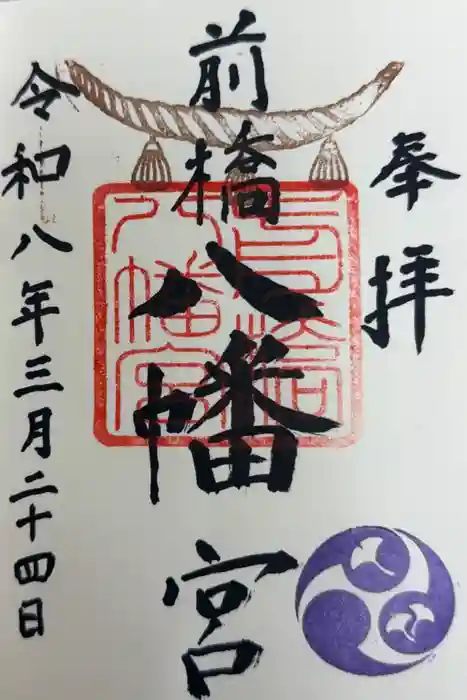 奉拝
前橋八幡宮
令和八年三月二十四日